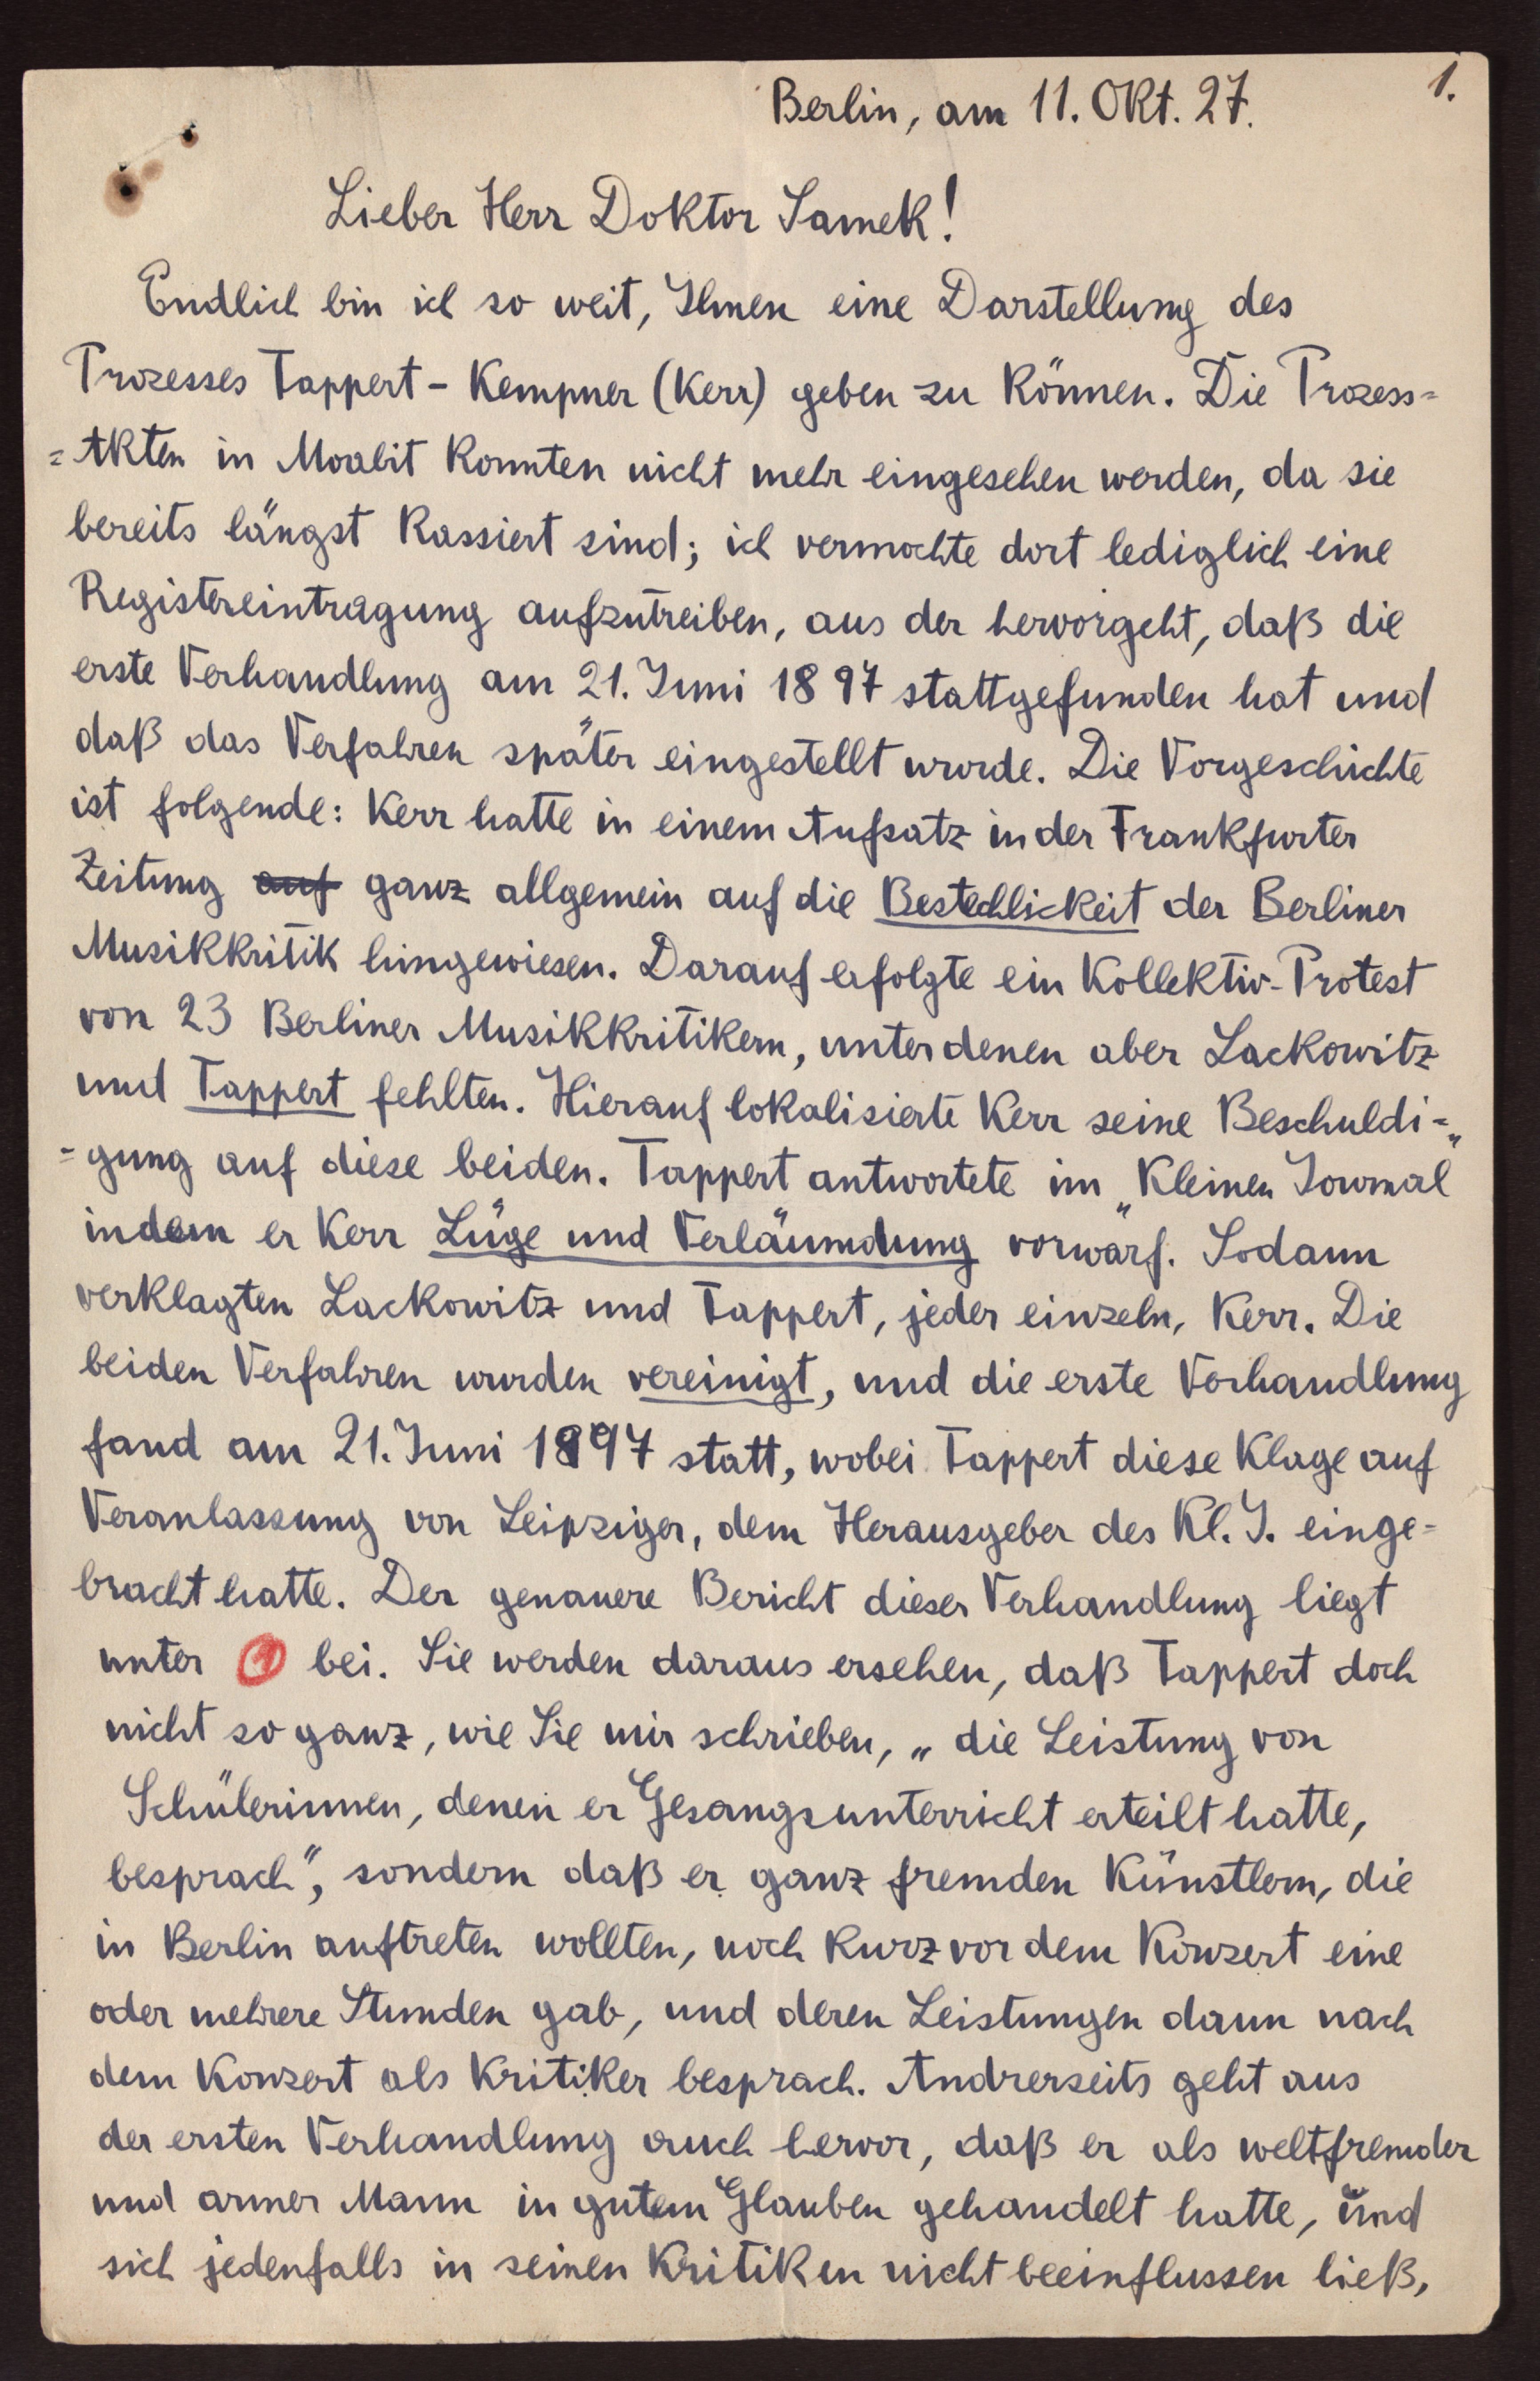 1.
Berlin, am 11. Okt. 27.
Lieber Herr Doktor Samek!
Endlich bin ich so weit, Ihnen eine Darstellung des
Prozesses Tappert - Kempner (Kerr) geben zu können. Die Prozess=
=Akten in Moabit konnten nicht mehr eingesehen werden, da sie
bereits längst kassiert sind; ich vermochte dort lediglich eine
Registereintragung aufzutreiben, aus der hervorgeht, daß die
erste Verhandlung am 21. Juni 1897 stattgefunden hat und
daß das Verfahren später eingestellt wurde. Die Vorgeschichte
ist folgende: Kerr hatte in einem Aufsatz in der Frankfurter
Zeitung auf ganz allgemein auf die Bestechlichkeit der Berliner
Musikkritik hingewiesen. Darauf erfolgte ein Kollektiv-Protest
von 23 Berliner Musikkritikern, unter denen aber Lackowitz
und Tappert fehlten. Hierauf lokalisierte Kerr seine Beschuldi=
=gung auf diese beiden. Tappert antwortete im „Kleinen Journal"
indem er Kerr Lüge und Verläumdung vorwarf. Sodann
verklagten Lackowitz und Tappert, jeder einzeln, Kerr. Die
beiden Verfahren wurden vereinigt, und die erste Verhandlung
fand am 21. Juni 1897 statt, wobei Tappert diese Klage auf
Veranlassung von Leipziger, dem Herausgeber des Kl. J. einge=
bracht hatte. Der genauere Bericht dieser Verhandlung liegt
unter 1 bei. Sie werden daraus ersehen, daß Tappert doch
nicht so ganz, wie Sie mir schrieben, „die Leistung von
Schülerinnen, denen er Gesangsunterricht erteilt hatte,
besprach", sondern daß er ganz fremden Künstlern, die
in Berlin auftreten wollten, noch kurz vor dem Konzert eine
oder mehrere Stunden gab, und deren Leistungen dann nach
dem Konzert als Kritiker besprach. Andrerseits geht aus
der ersten Verhandlung auch hervor, daß er als weltfremder
und armer Mann in gutem Glauben gehandelt hatte, und
sich jedenfalls in seinen Kritiken nicht beeinflussen ließ,